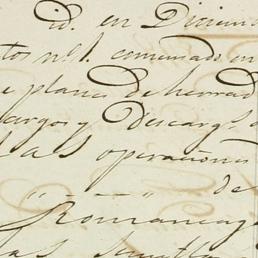 id. en Diciem
tos nº 1. comensado en
e planes de herrad
argos y Descargs. d
las operaciones
" — " de
Romana y
las Semilla